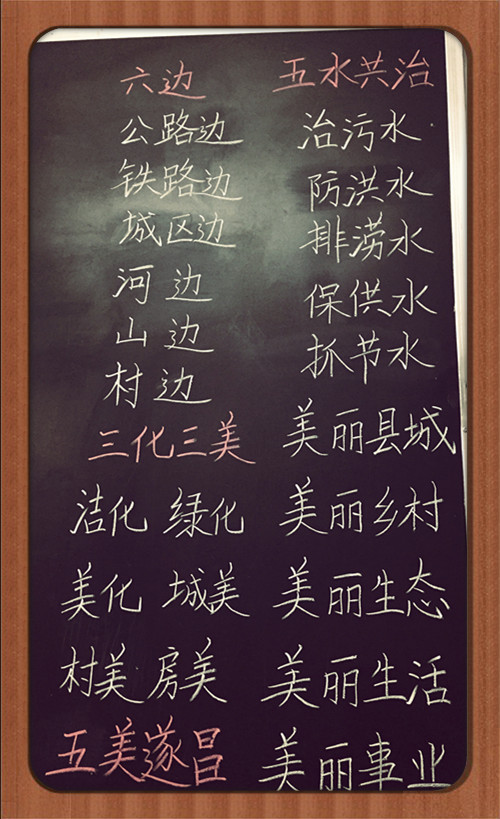 六边
公路边
铁路边
城区边
河边
山边
村边
三化三美
洁化 绿化
美化 城美
村美 房美
五美遂昌
五水共治
治污水
防洪水
排涝水
保供水
抓节水
美丽县城
美丽乡村
美丽生态
美丽生活
美丽事业